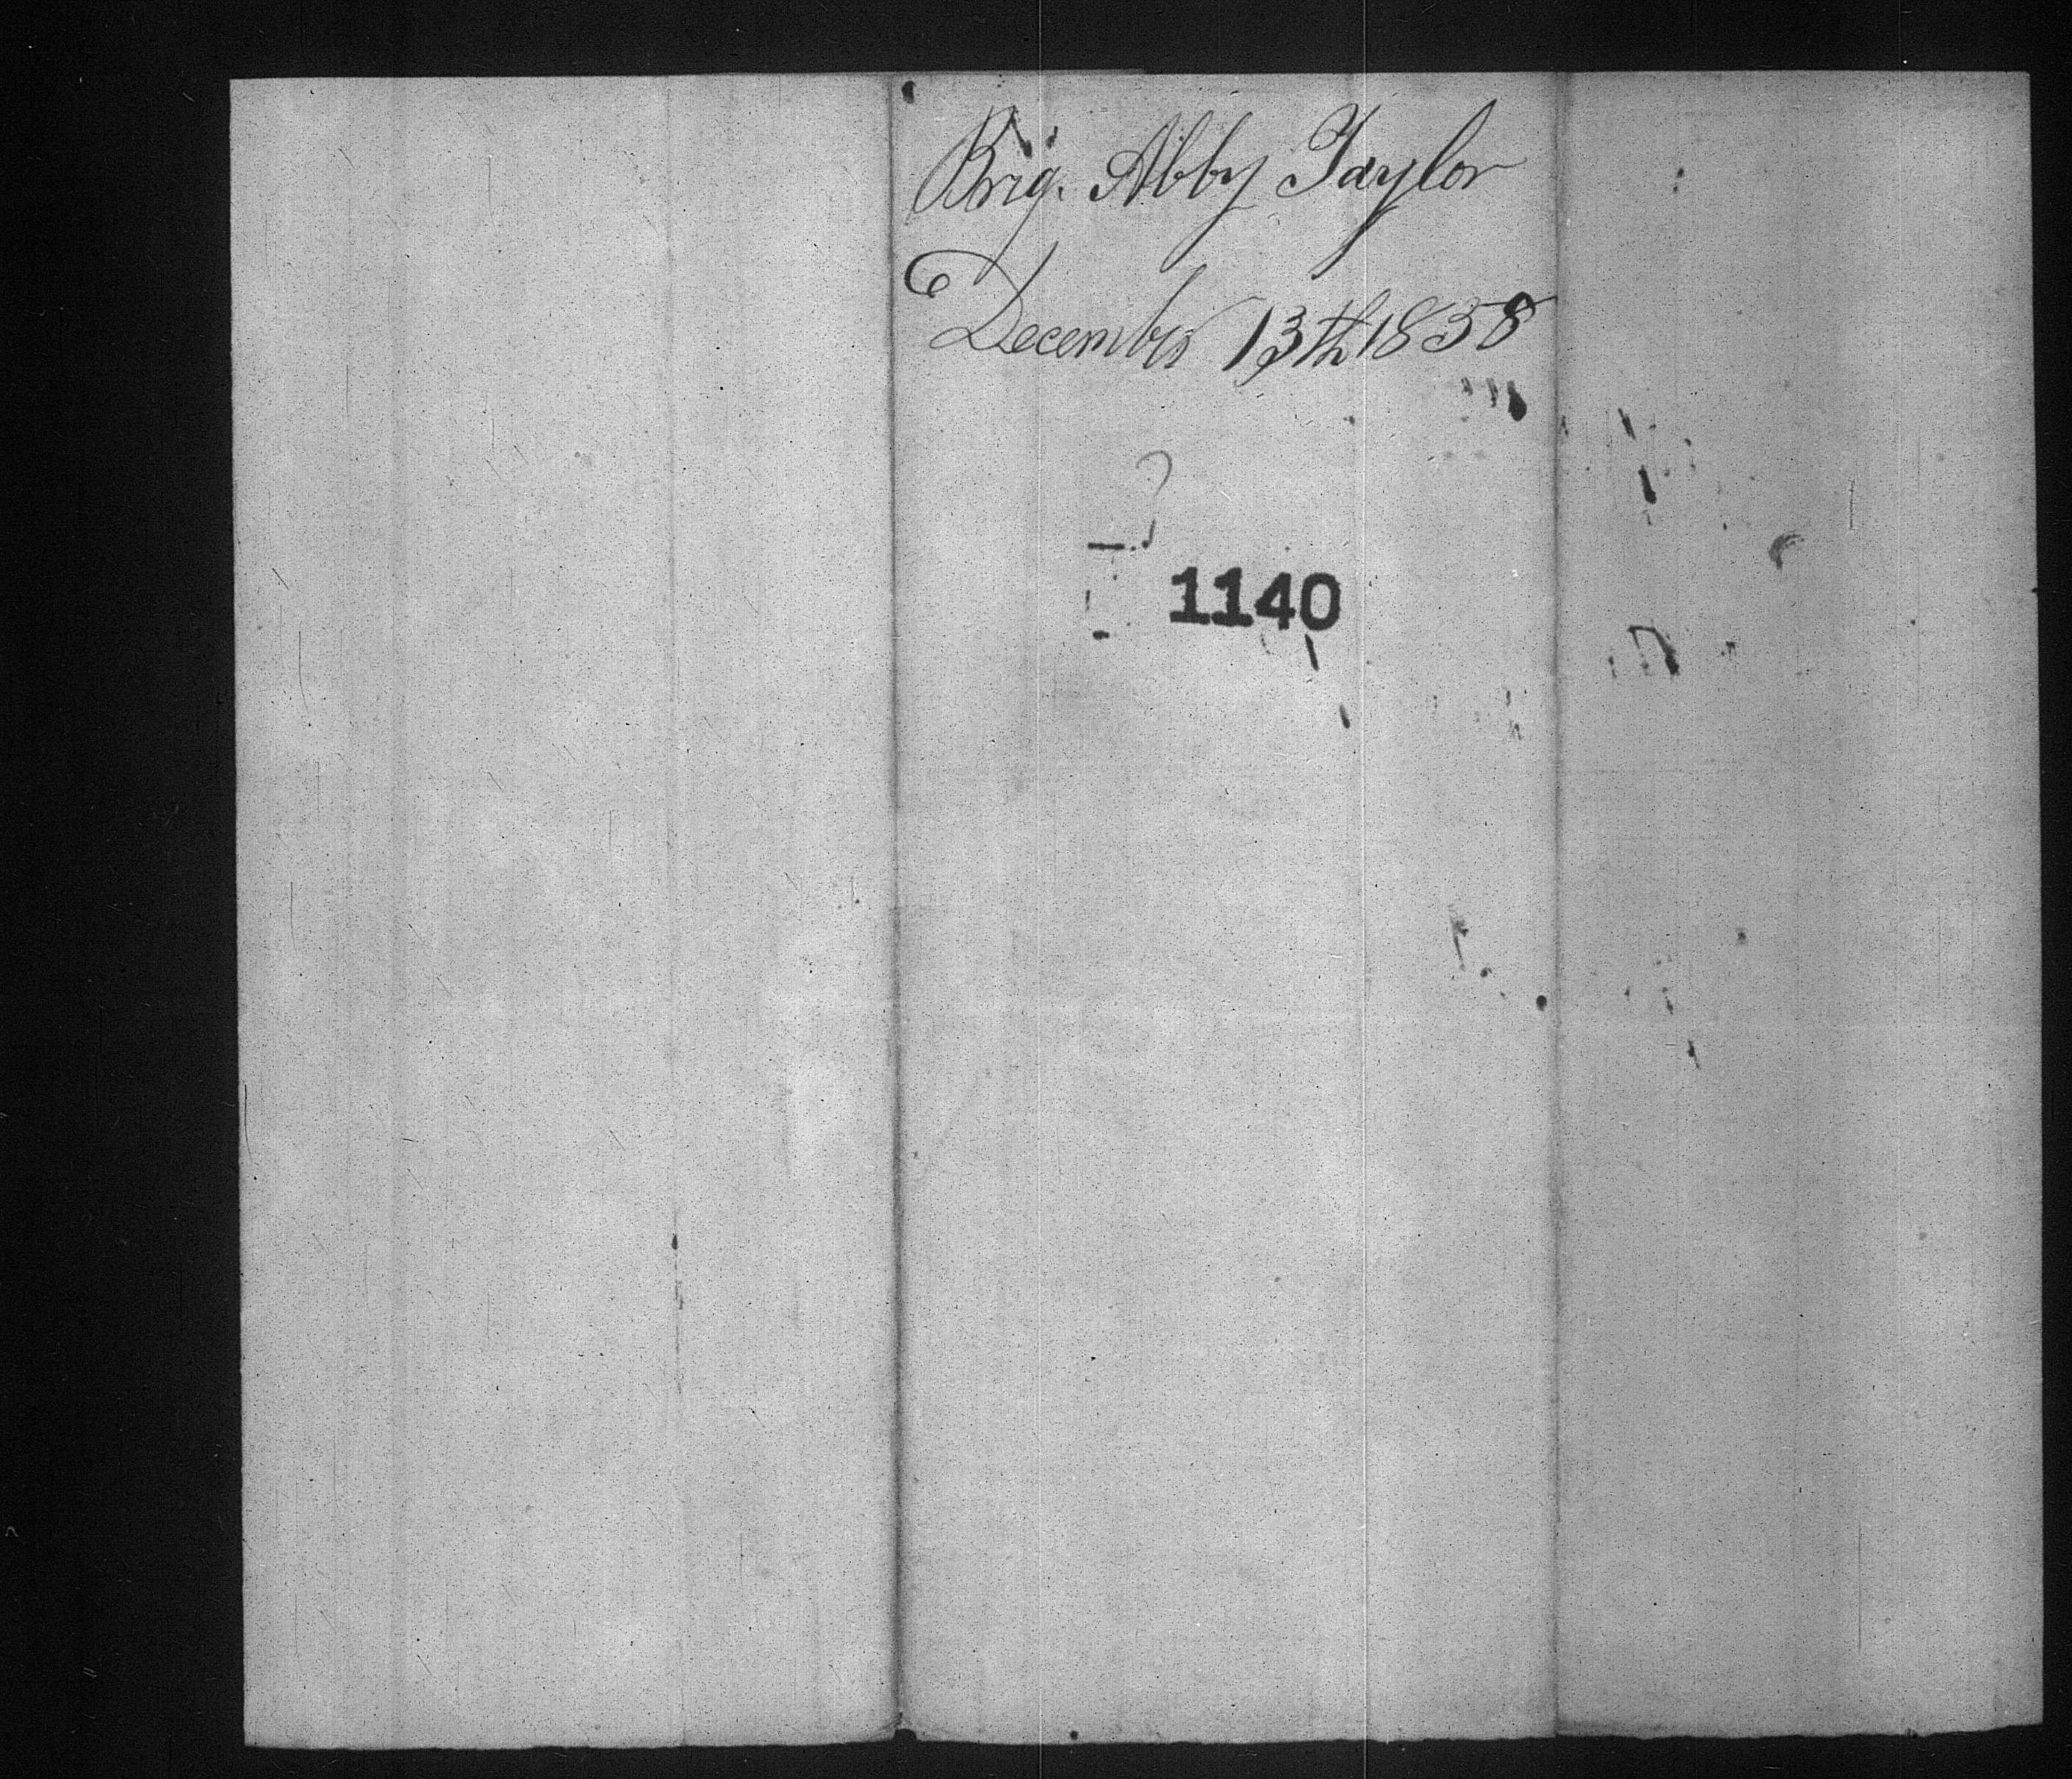 Brig. Abby Taylor
December 13th 1858
1140